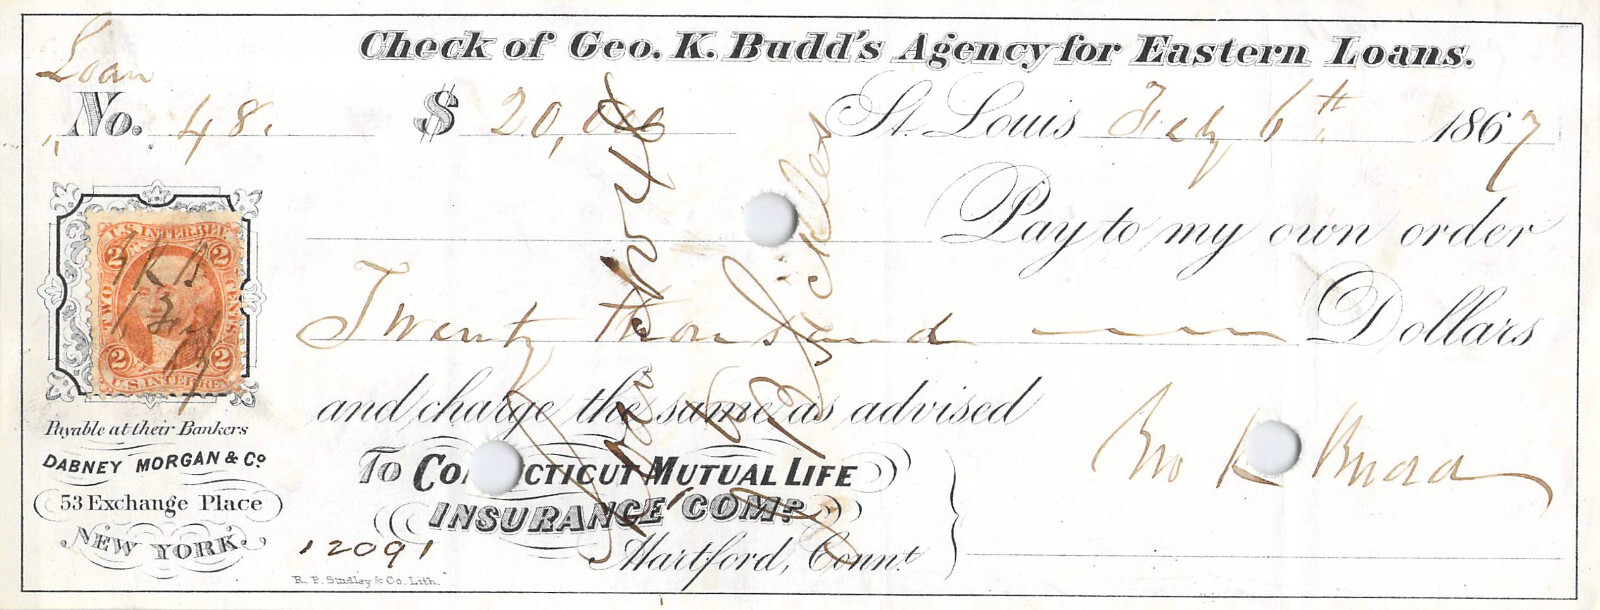 Check of Geo. K. Budd's Agency for Eastern Loans.
Loan
No. 48. $ 20,000 St. Louis Feby 6th 1867
Pay to my own order
Twenty thousand Dollars
and charge the same as advised
To CO CTICUT MUTUAL LIFE
INSURANCE COMP.
Hartford, Connt.
Geo K Budd
U.S. INTER REV
2 2
TWO CENTS
2 2
U.S. INTER REV
GKB
Payable at their Bankers
DABNEY MORGAN & Co
53 Exchange Place
NEW YORK.
12091
R. P. Studley & Co. Lith.